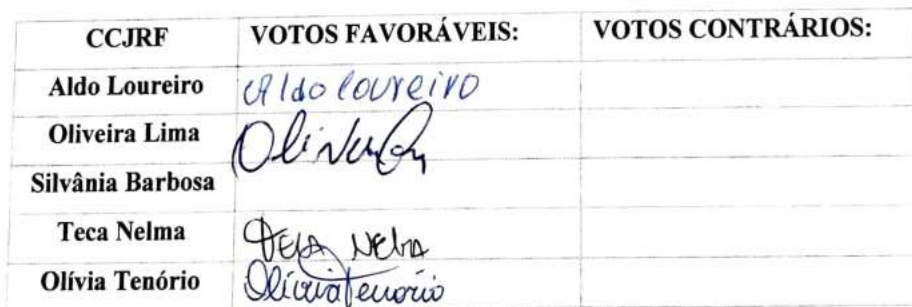 CCJRF VOTOS FAVORÁVEIS: VOTOS CONTRÁRIOS:
Aldo Loureiro Aldo Loureiro
Oliveira Lima
Silvânia Barbosa
Teca Nelma Teca Nelma
Olívia Tenório Olívia Tenorio